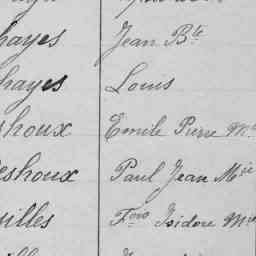 hayes Jean Bte
hayes Louis
shoux Emile Pierre M
eshoux Paul Jean Mie
illes Fois Isidore Mie